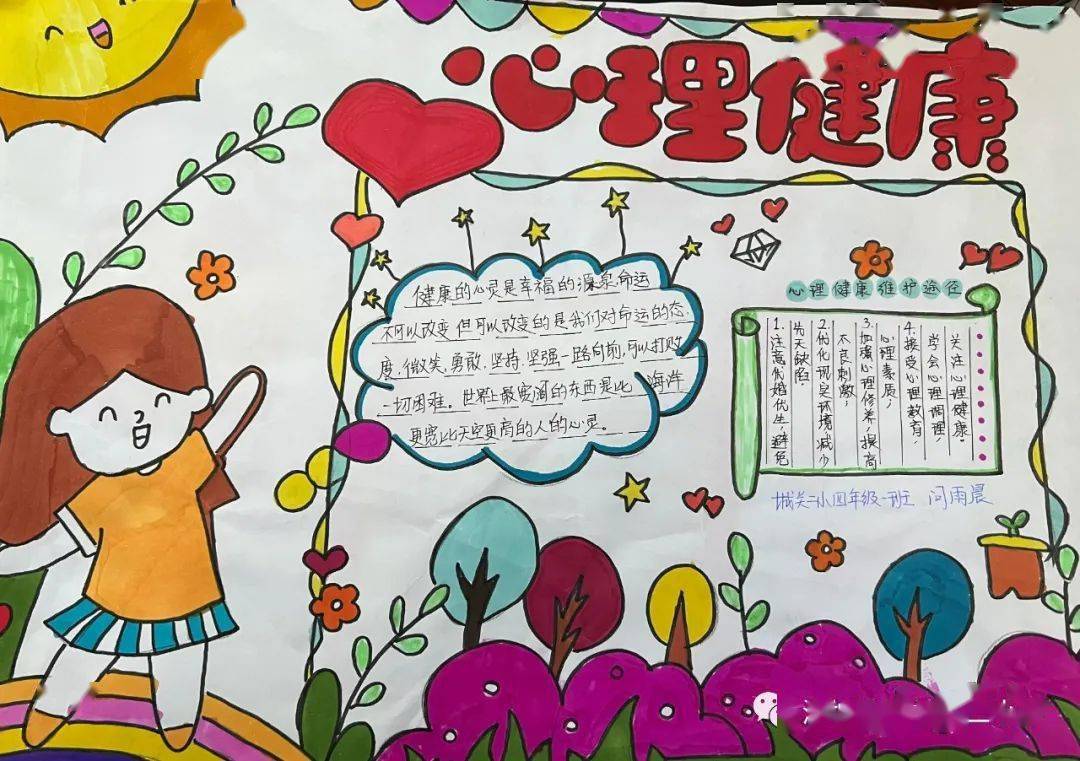 心理健康
健康的心灵是幸福的源泉,命运
不可以改变,但可以改变的是我们对命运的态
度,微笑,勇敢,坚持,坚强一路向前,可以打败
一切困难。世界上最宽阔的东西是比海洋
更宽比天空更高的人的心灵。
心理健康维护途径
1.注意优婚优生,避免
先天缺陷,
2.优化现实环境减少
不良刺激,
3.加强心理修养,提高
心理素质,
4.接受心理教育,
学会心理调理,
关注心理健康。
城关二小四年级一班 问雨晨